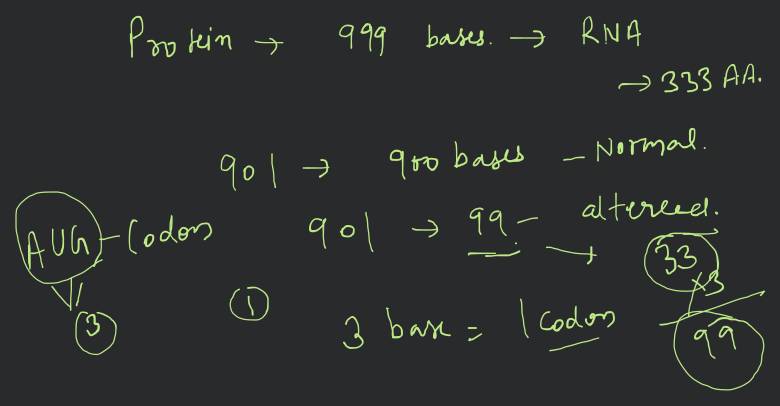 Protein → 999 bases. → RNA
→ 333 AA.
901 → 900 bases — Normal.
AUG - Codons
901 → 99 — altered.
→ 33
x3
99
3
1
3 base = 1 codons